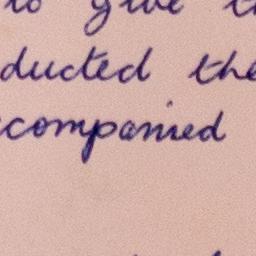 to give
ducted the
ccompanied